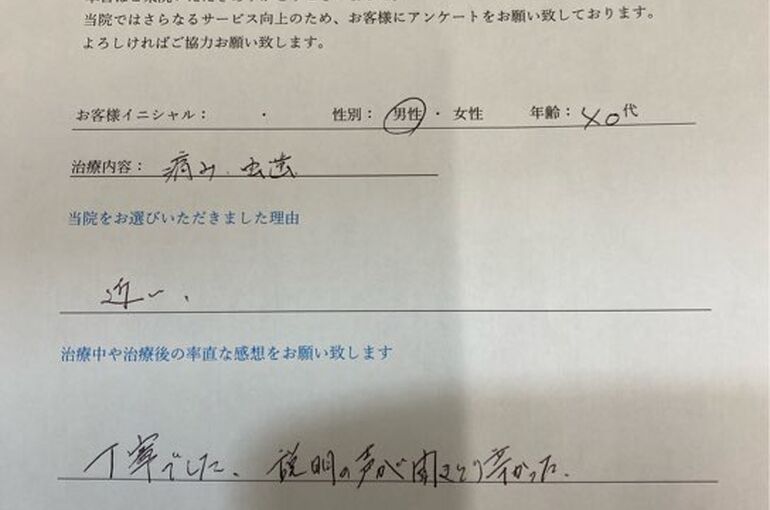 当院ではさらなるサービス向上のため、お客様にアンケートをお願い致しております。
よろしければご協力お願い致します。
お客様イニシャル： ・ 性別： 男性 ・ 女性 年齢： 40代
治療内容： 痛み、虫歯
当院をお選びいただきました理由
近い、
治療中や治療後の率直な感想をお願い致します
丁寧でした、説明の声が聞きとり